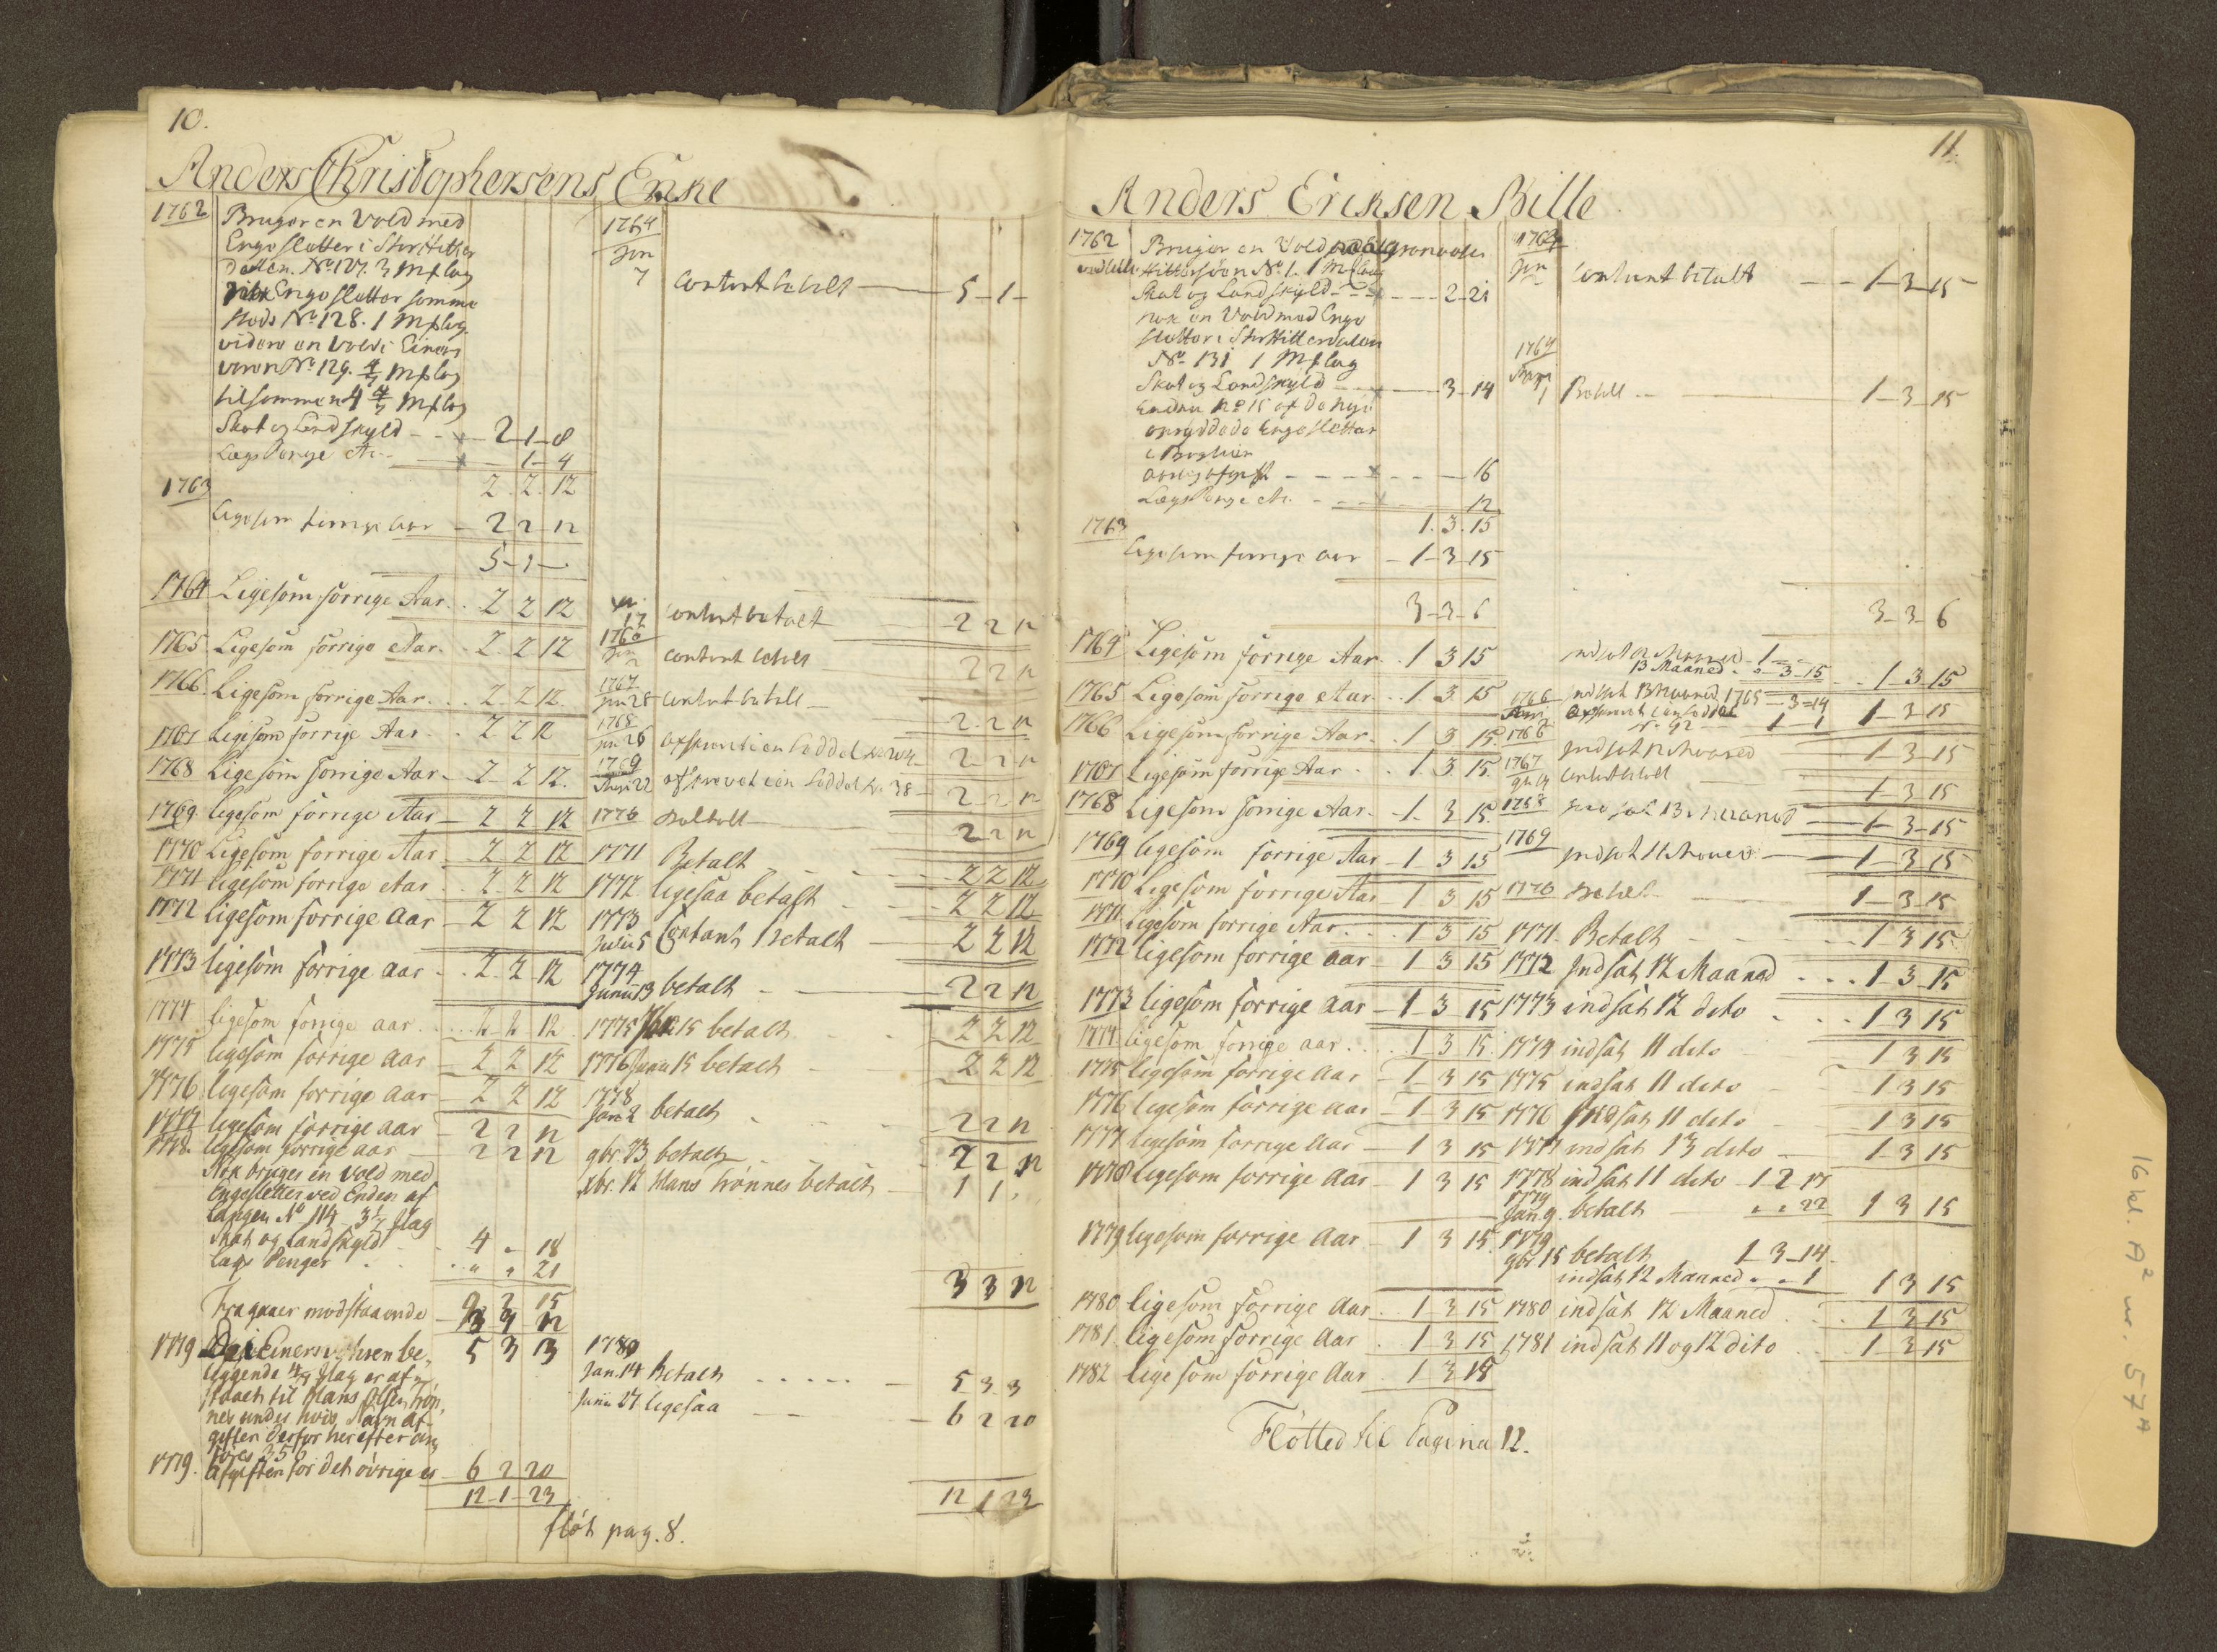 10.
Anders Christophersens Enke
1762 Bruger en Vold med
Enge sletter i Stor Hitter
dalen. No 127. 3 Mk lag
Enge sletter samme
steds No 128. 1 Mk lag
videre en Vold i
No 129. 4/7 Mk lag
tilsammen 4 4/7 Mk lag
Skat og Landskyld 2-1-8
Lægs Penge 1-4
2. 2. 12
1763
Ligesom forrige Aar 2 2 12
5-1-
1764 Ligesom forrige Aar. 2 2 12
1765. Ligesom forrige Aar. 2. 2 12
1766. Ligesom forrige Aar. 2. 2 12.
1767 Ligesom forrige Aar. 2 2 12
1768 Ligesom forrige Aar. 2. 2 12.
1769. ligesom forrige Aar 2 2 12
1770 Ligesom forrige Aar 2 2 12
1771 ligesom forrige Aar 2. 2 12
1772 ligesom forrige aar 2 2 12
1773 ligesom forrige aar 2. 2 12
1774 ligesom forrige aar. 2. 2 12
1775 ligesom forrige aar 2 2 12
1776 ligesom forrige aar 2 2 12
1777 ligesom forrige aar 2 2 12
1778. ligesom forrige aar 2 2 12
Nok bruges en Vold med
Engesletter ved Enden af
Langen No 114 3 1/2 Mk lag
Skat og Landskyld 4 " 18
Lægs Penger " " 21
7 2 15
Fragaaer modstaaende 3 3 12
1779 be- 5 3 3
liggende 4/7 Mk lag er af-
staaet til Hans Olsen Trøn-
nes under hvis Navn af-
giften derfor herefter an-
føres 356
1779. Afgiften for det øvrige er 6 2 20
12-1-23
fløt pag. 8.
1764
Jan
7 Contant betalt 5-1-
17 Contant betalt 2 2 12
1766
Jan
2 Contant betalt 2 2 12
1767
Jan 28 Contant betalt 2. 2 12
1768
Jan 26 afskrevet en Seddel 2. 2 12
1769
22 afskrevet een Seddel No. 38 2 2 12
1770 betalt 2 2 12
1771 Betalt 2 2 12
1772 ligesaa betalt 2 2 12
1773
Julii 5 Contant Betalt 2 2 12
1774
Junii 13 betalt 2 2 12
1775 15 betalt 2 2 12
1776 Junii 15 betalt 2 2 12
1778
Jan 2 betalt 2 2 12
9br. 23 betalt 2 2 12
Xbr. 12 Hans Trønnes betalt 1 1.
3 3 12
1780
Jan. 14 Betalt 5 3 3
Junii 27 ligesaa 6 2 20
12 1 23
11.
Anders Eriksen Bille
1762 Bruger en Vold
Hittersøen No 1. 1 Mk lag
Skat og Landskyld 2-21
nok en Vold med Enge
sletter i Stor Hitterdalen
No 131 1 Mk lag
Skat og Landskyld 3-14
Endnu No 15 af de nye
opryddede Enge sletter
aarlig afgift 16
Lægs Penge 12
1. 3. 15
1763
Ligesom forrige aar 1-3-15
3-3-6
1764 Ligesom forrige Aar. 1 3 15
1765 Ligesom forrige Aar. 1. 3 15
1766 Ligesom forrige Aar. 1 3 15.
1767 Ligesom forrige Aar. 1. 3 15.
1768 Ligesom forrige Aar. 1. 3 15.
1769 ligesom forrige Aar 1 3 15
1770 Ligesom forrige Aar 1 3 15
1771 ligesom forrige Aar. 1 3 15
1772 ligesom forrige aar 1 3 15
1773 ligesom forrige aar 1 3 15
1774 ligesom forrige aar. 1 3 15.
1775 ligesom forrige aar 1 3 15
1776 ligesom forrige aar 1 3 15
1777 ligesom forrige Aar 1 3 15
1778 ligesom forrige Aar 1 3 15
1779 ligesom forrige Aar 1 3 15
1780 ligesom forrige Aar. 1 3 15
1781. ligesom forrige Aar. 1 3 15
1782 ligesom forrige Aar. 1 3 15
Fløtted til Pagina 12.
1764
Jan Contant betalt 1-3-15
1764
1 Betalt 1-3-15
3-3-6
indsat 12 Maaned 1
13 Maaned. " 3-15 1-3-15
1766 indsat 13 Maaned 1765 3-14
afskrevet Seddel
No. 92 1-1 1-3-15
1766 indsat 12 Maaned 1-3-15
1767
Contant betalt 1 3 15
1768 indsat 13 Maaned 1-3-15
1769 indsat 11 Maaned 1-3-15
1770 betalt 1-3-15
1771. Betalt 1 3 15
1772 Indsat 12 Maaned 1-3-15
1773 indsat 12 dito 1 3 15
1774 indsat 11 dito 1 3 15
1775 indsat 11 dito 1 3 15
1776 indsat 11 dito 1 3 15
1777 indsat 13 dito 1 3 15
1778 indsat 11 dito 1 2 17
1779
Jan 9. betalt " " 22 1 3 15
1779
9br 15 betalt 1-3-14
indsat 12 Maaned " " 1 1 3 15
1780 indsat 12 Maaned 1 3 15
1781 indsat 11 og 12 dito 1-3-15
16 kl. A2 nr. 57A